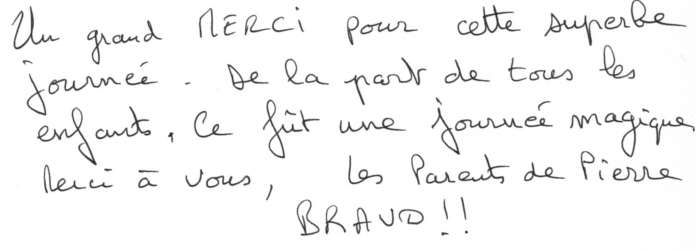 Un grand MERCi pour cette superbe
journée. De la part de tous les
enfants. Ce fût une journée magique,
Merci à vous, Les Parents de Pierre
BRAVO !!